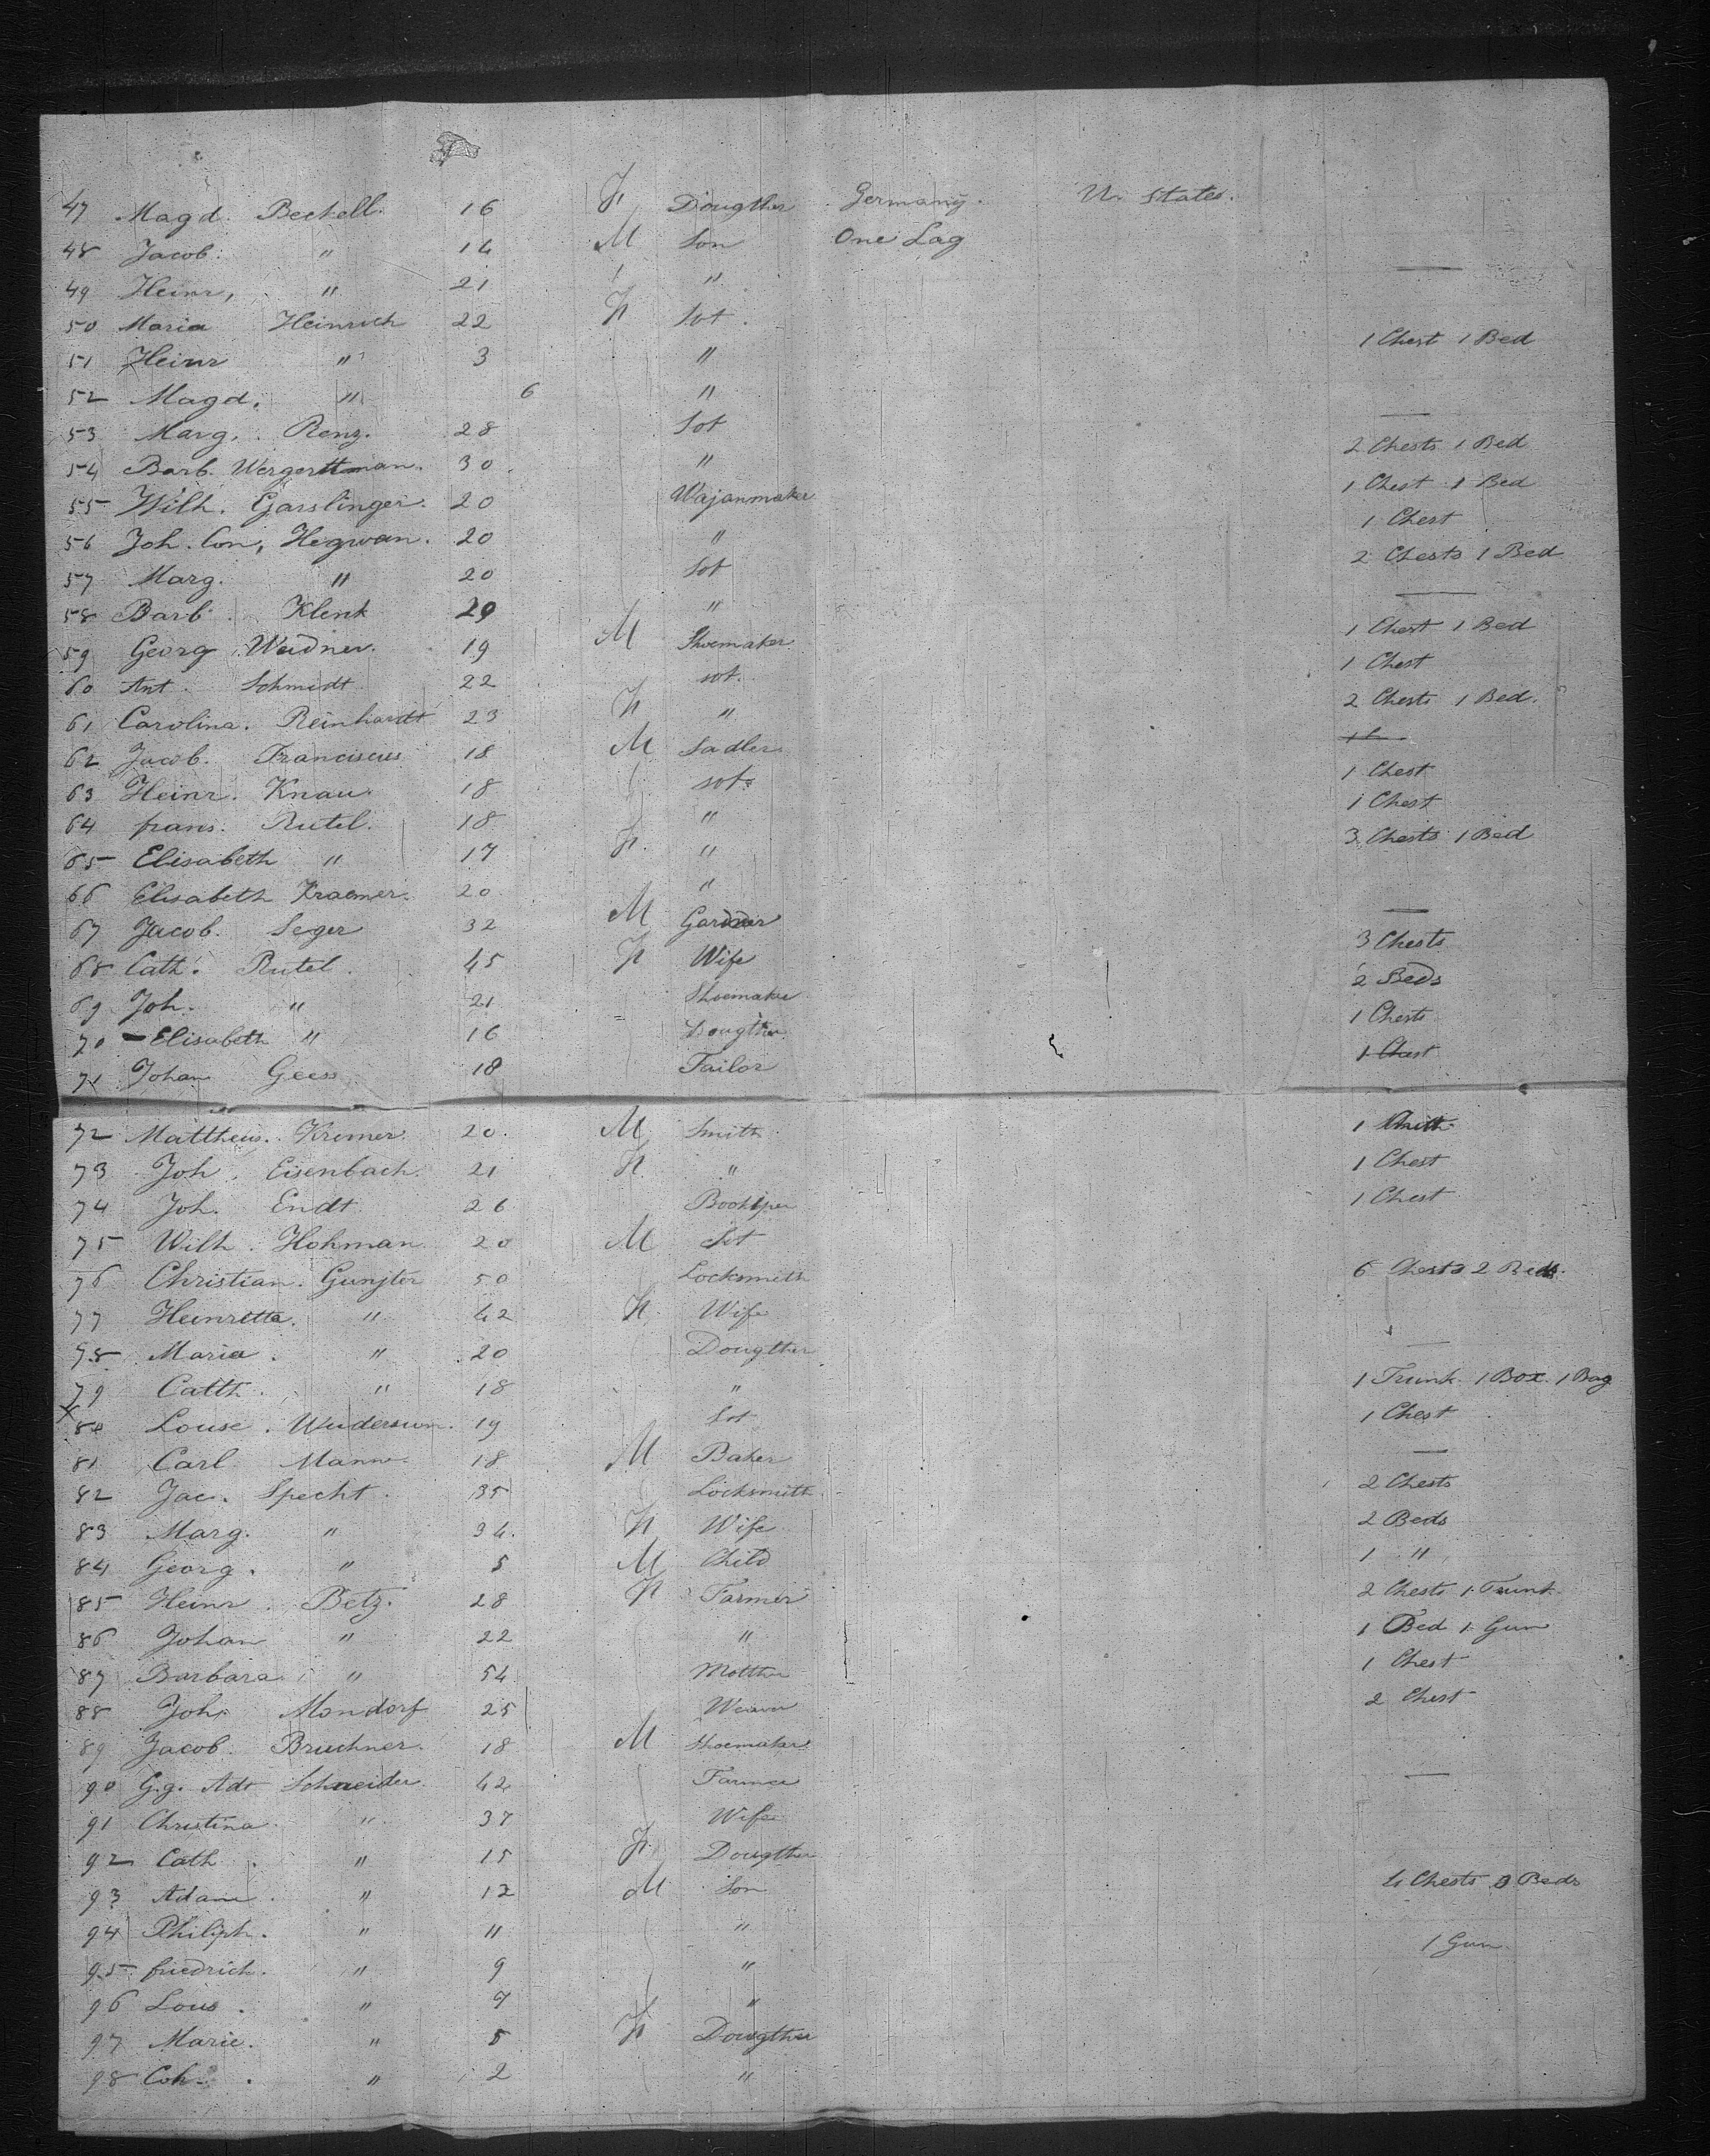 47 Magd. Beckell. 16 F Dougther Germany. U. States.
48 Jacob. " 14 M Son One Lag
49 Heinr, " 21 "
50 Maria Heinrich 22 F Sot.
51 Heinr " 3 " 1 Chest 1 Bed
52 Magd. " 6 "
53 Marg. Renz. 28 Sot
54 Barb. Wergerttman. 30. " 2 Chests 1 Bed
55 Wilh. Garslinger. 20 Wajanmaker 1 Chest 1 Bed
56 Joh. Con, Hegwan. 20 " 1 Chest
57 Marg. " 20 Sot 2 Chests 1 Bed
58 Barb. Klenk 29 "
59 Georg Weidner. 19 M Shoemaker 1 Chest 1 Bed
60 Ant. Schmidt 22 sot. 1 Chest
61 Carolina. Reinhardt 23 F " 2 Chests 1 Bed.
62 Jacob. Franciscus 18 M Sadler
63 Heinr. Knau. 18 sot. 1 Chest
64 frans. Rutel. 18 " 1 Chest
65 Elisabeth " 17 F. " 3 Chests 1 Bed
66 Elisabeth Kraemer. 20 "
67 Jacob. Seger 32 M Gardner
68 Cath. Rutel. 45 F Wife 3 Chests
69 Joh. " 21 Shoemaker 2 Beds
70 - Elisabeth " 16 Dougther 1 Chest
71 Johan Gees 18 Tailor 1 Chest
72 Mattheus. Kremer. 20. M Smith 1
73 Joh. Eisenbach. 21 F. " 1 Chest
74 Joh. Endt 26 Bookkper 1 Chest
75 Wilh. Hohman 20 M Sot
76 Christian. Gunjter 50 Locksmith 6 Chests 2 Beds.
77 Heinretta. " 42 F Wife
78 Maria. " 20 Dougther
79 Catth. " 18 " 1 Trunk 1 Box. 1 Bag
x 80 Louse. 19 Sot 1 Chest
81 Carl Mann. 18 M Baker
82 Jac. Specht. 35 Locksmith. 2 Chests
83 Marg. " 34. F Wife 2 Beds
84 Georg. " 5 M Child 1 "
85 Heinr. Betz. 28 F Farmer 2 Chests 1 Trunk
86 Johan " 22 " 1 Bed 1 Gun
87 Barbara " 54 Motther 1 Chest
88 Joh. Mondorf 25 Weaver 2 Chest
89 Jacob. Bruchner. 18 M Shoemaker
90 Gg. Adt Schneider 42 Farmer
91 Christina " 37 Wife
92 Cath. " 15 F. Dougther
93 Adam. " 12 M Son 4 Chests 3 Beds
94 Philiph. " 11 " 1 Gun
95 friedrich. " 9 "
96 Lous. " 7 "
97 Marie. " 5 F Dougther
98 Coh. " 2 "